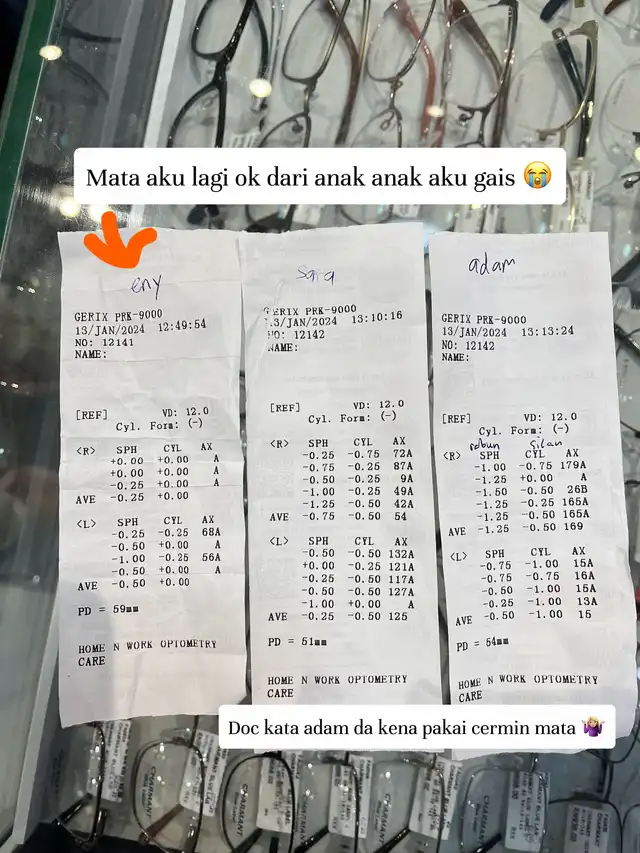 Mata aku lagi ok dari anak anak aku gais 😭
eny
GERIX PRK-9000
13/JAN/2024 12:49:54
NO: 12141
NAME:
[REF] VD: 12.0
Cyl. Form: (-)
<R> SPH CYL AX
+0.00 +0.00 A
+0.00 +0.00 A
-0.25 +0.00 A
AVE -0.25 +0.00
<L> SPH CYL AX
-0.25 -0.25 68A
-0.50 +0.00 A
-1.00 -0.25 56A
-0.50 +0.00 A
AVE -0.50 +0.00
PD = 59mm
HOME N WORK OPTOMETRY
CARE
sara
GERIX PRK-9000
13/JAN/2024 13:10:16
NO: 12142
NAME:
[REF] VD: 12.0
Cyl. Form: (-)
<R> SPH CYL AX
-0.25 -0.75 72A
-0.25 -0.75 87A
-0.50 -0.25 9A
-1.00 -0.25 49A
-1.25 -0.50 42A
AVE -0.75 -0.50 54
<L> SPH CYL AX
-0.50 -0.50 132A
+0.00 -0.25 121A
-0.25 -0.50 117A
-0.50 -0.50 127A
-1.00 +0.00 A
AVE -0.25 -0.50 125
PD = 51mm
HOME N WORK OPTOMETRY
CARE
adam
GERIX PRK-9000
13/JAN/2024 13:13:24
NO: 12142
NAME:
[REF] VD: 12.0
Cyl. Form: (-)
rabun silau
<R> SPH CYL AX
-1.00 -0.75 179A
-1.25 +0.00 A
-1.50 -0.50 26B
-1.25 -0.25 165A
-1.25 -0.50 165A
AVE -1.25 -0.50 169
<L> SPH CYL AX
-0.75 -1.00 15A
-0.75 -0.75 16A
-0.50 -1.00 15A
-0.25 -1.00 13A
AVE -0.50 -1.00 15
PD = 54mm
HOME N WORK OPTOMETRY
CARE
Doc kata adam da kena pakai cermin mata 🤷🏼‍♀️
CHARMANT
CHARMANT
CHARMANT